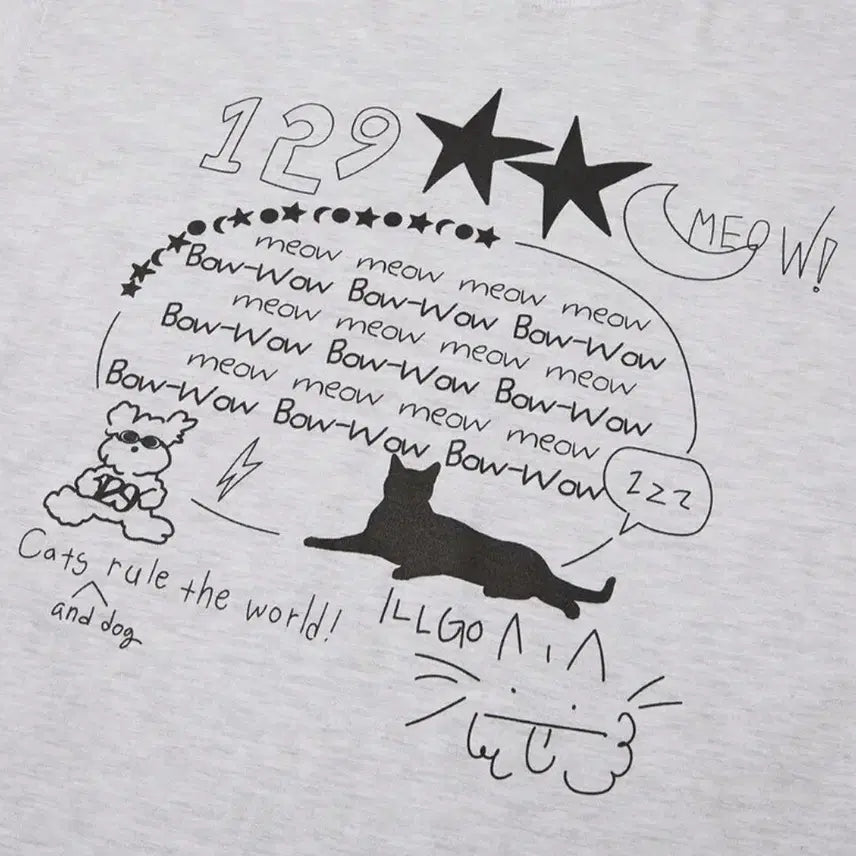 129
MEOW!
meow meow meow meow
Bow-Wow Bow-Wow Bow-Wow
meow meow meow meow
Bow-Wow Bow-Wow Bow-Wow
meow meow meow meow
Bow-Wow Bow-Wow Bow-Wow
129
122
Cats rule the world!
and dog
ILLGO